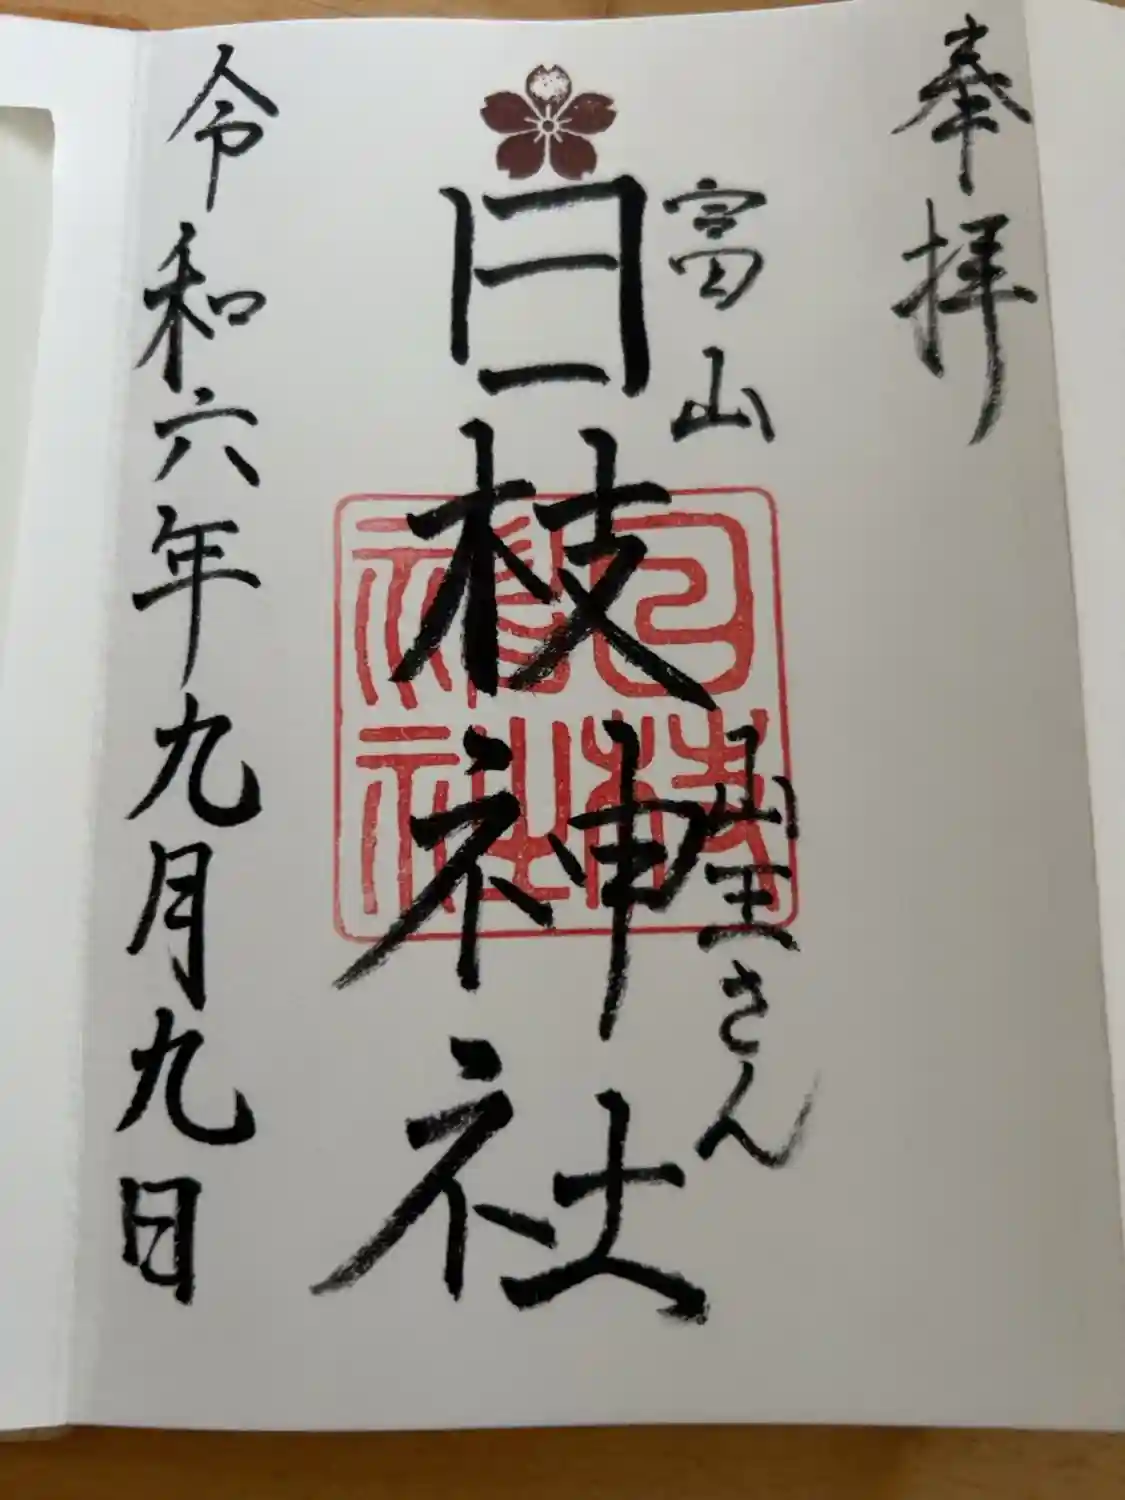 奉拝
富山
山王さん
日枝神社
日枝神社
令和六年九月九日